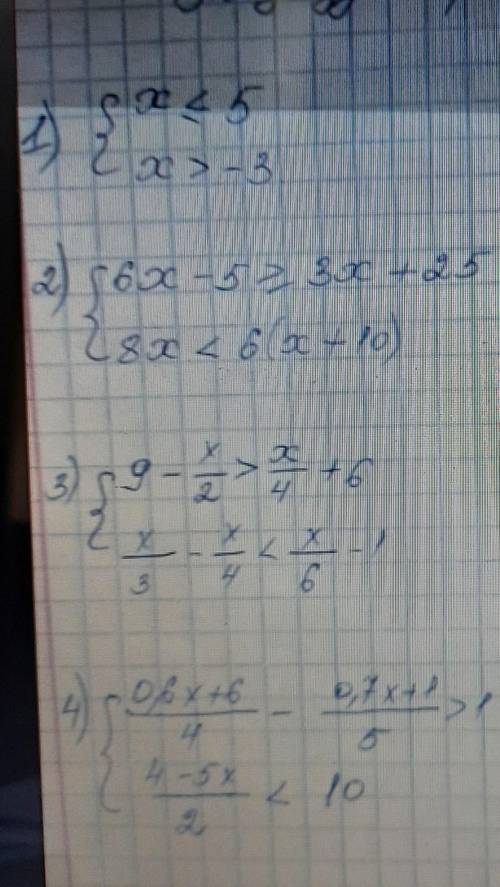 1) { x ≤ 5
x > -3
2) { 6x - 5 ≥ 3x + 25
8x < 6(x + 10)
3) { 9 - x/2 > x/4 + 6
x/3 - x/4 < x/6 - 1
4) { (0,6x+6)/4 - (0,7x+1)/5 > 1
(4-5x)/2 < 10